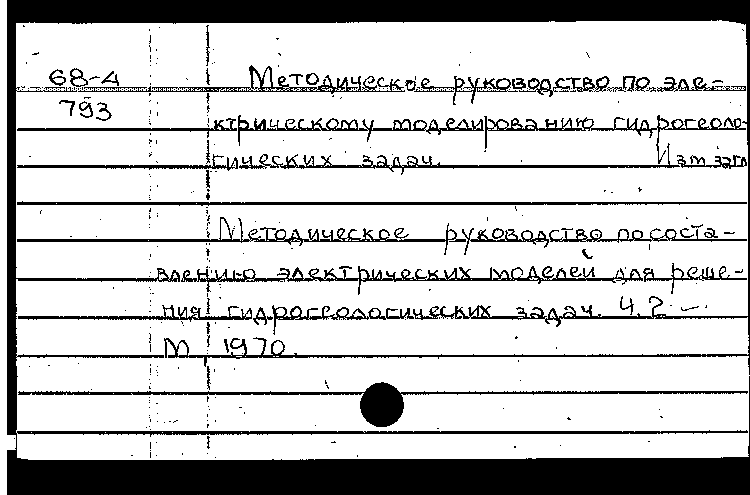 68-4
793
Методическое руководство по эле-
ктрическому моделированию гидрогеоло-
гических задач. Изм. загл
Методическое руководство по соста-
влению электрических моделей для реше-
ния гидрогеологических задач. Ч. 2 —.
М, 1970.